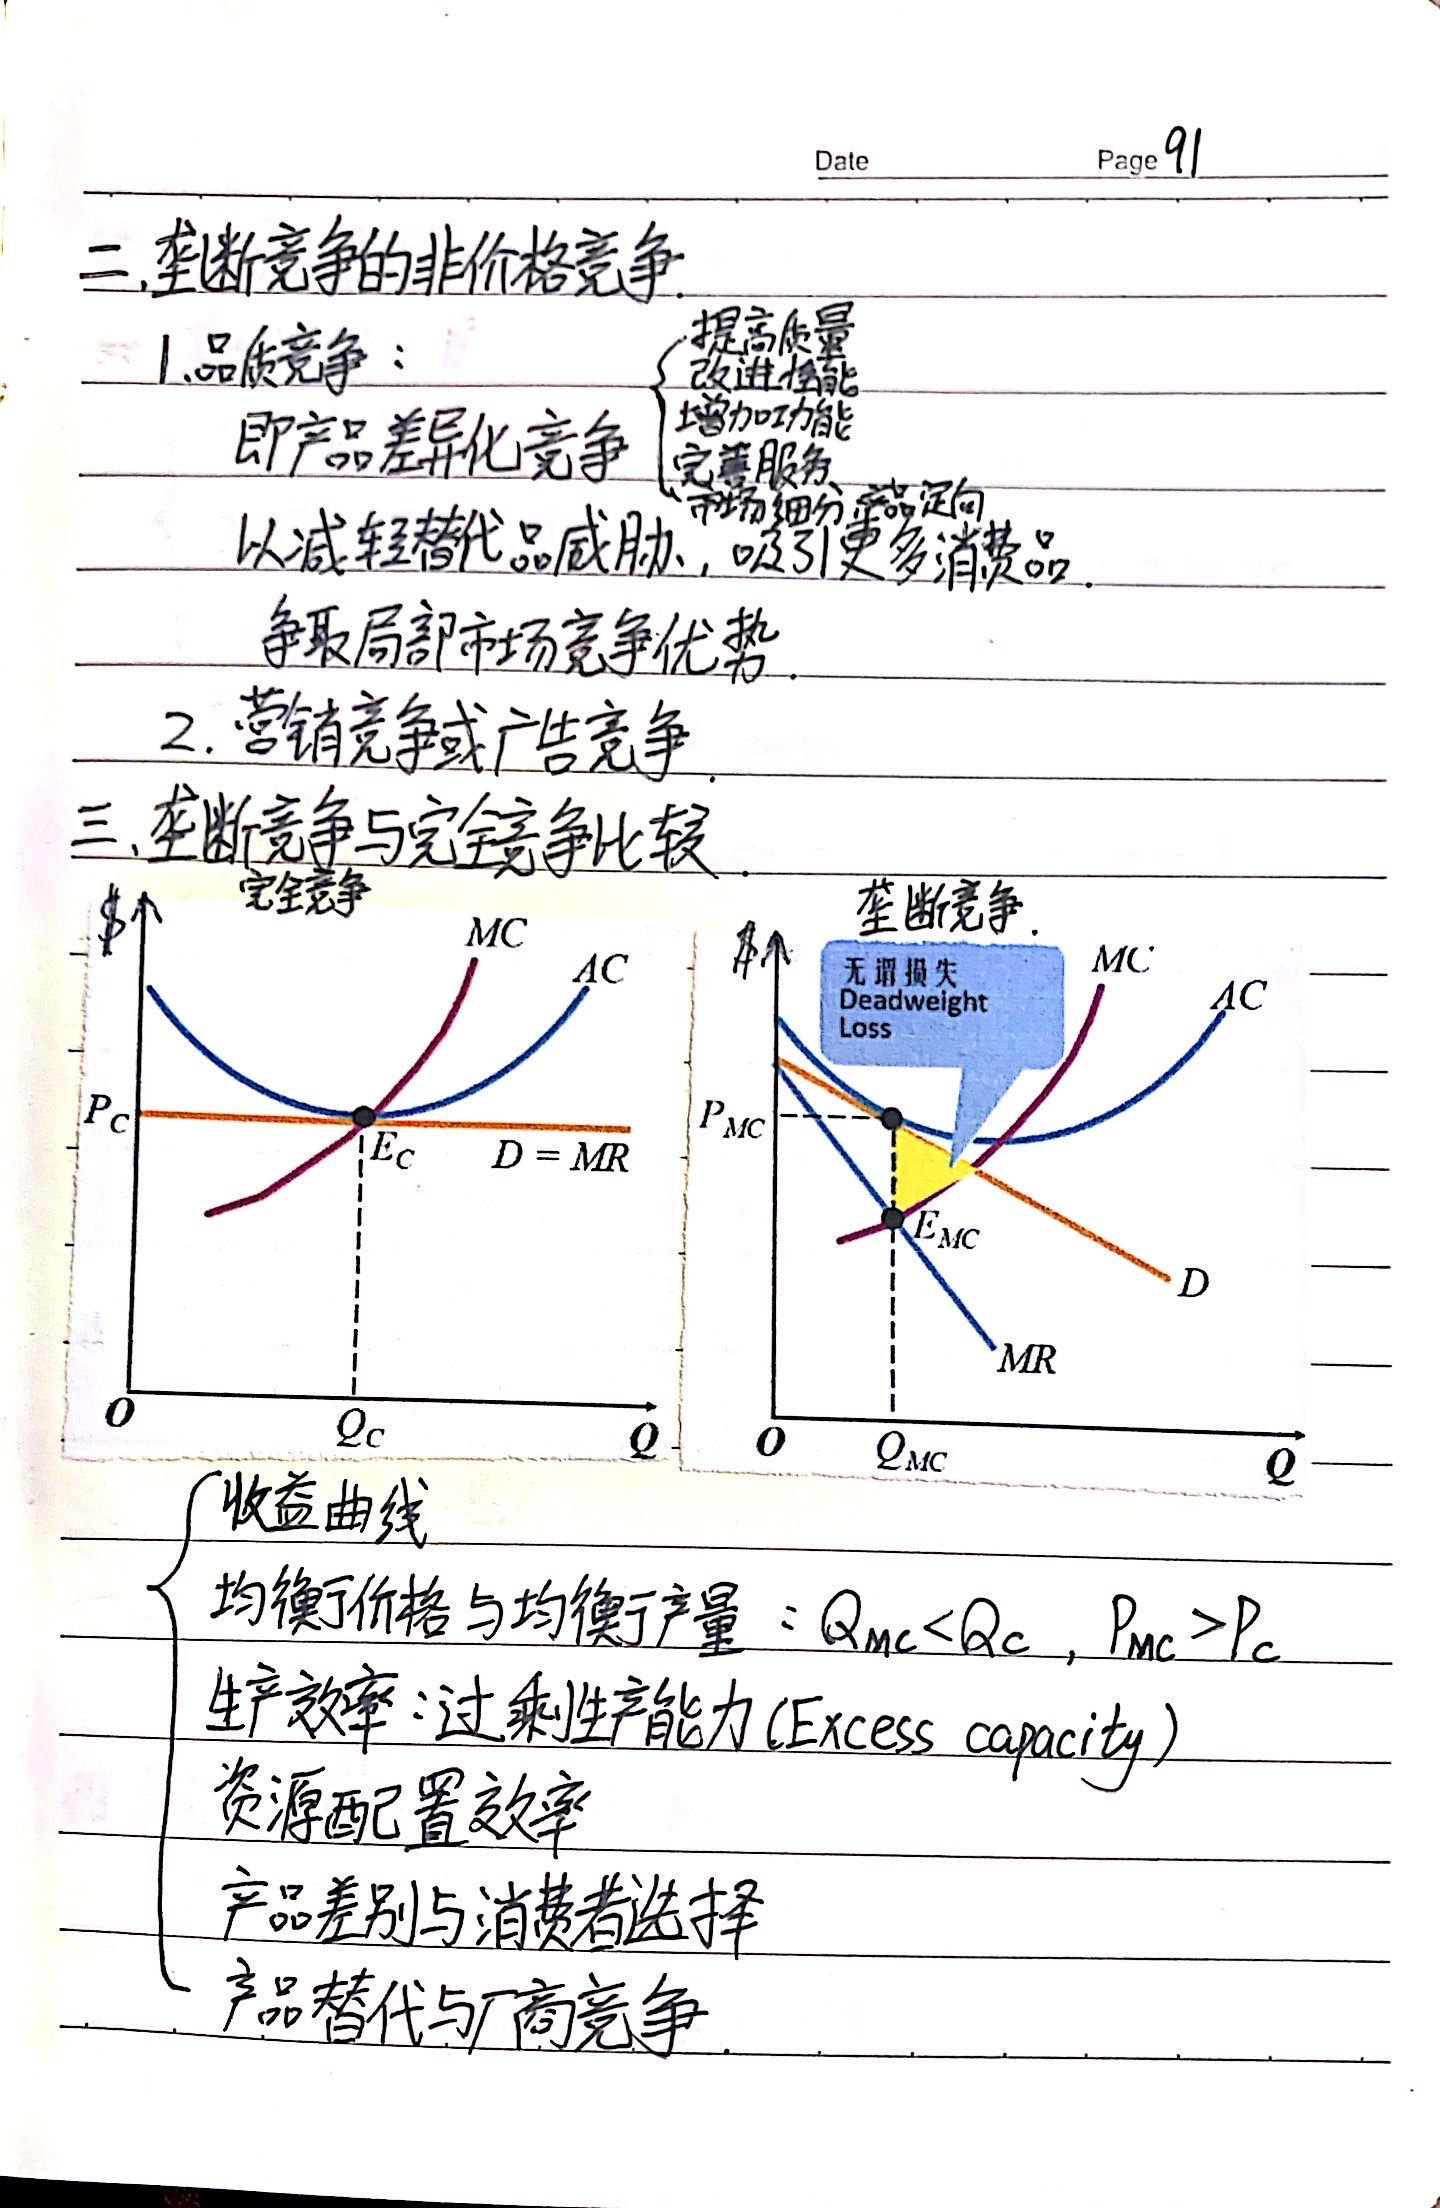 Date Page 91
二、垄断竞争的非价格竞争.
1.品质竞争：
提高质量
改进性能
增加功能
即产品差异化竞争
完善服务
市场细分 产品定向
以减轻替代品威胁，吸引更多消费品.
争取局部市场竞争优势.
2.营销竞争或广告竞争.
三、垄断竞争与完全竞争比较.
完全竞争
$
MC
AC
PC
EC
D = MR
O
QC
Q
垄断竞争.
$
无谓损失
Deadweight
Loss
MC
AC
PMC
EMC
D
MR
O
QMC
Q
收益曲线
均衡价格与均衡产量：QMC<QC，PMC>PC
生产效率：过剩生产能力(Excess capacity)
资源配置效率
产品差别与消费者选择
产品替代与厂商竞争.